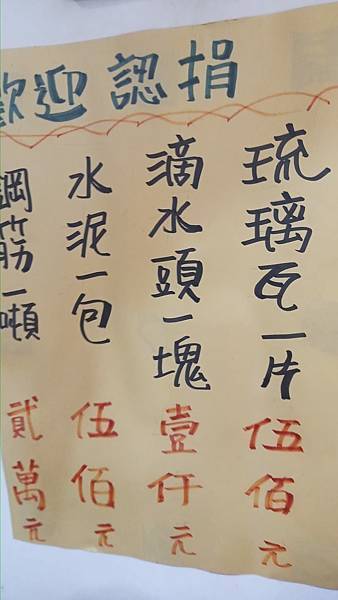 歡迎認捐
琉璃瓦一片伍佰元
滴水頭一塊壹仟元
水泥一包伍佰元
鋼筋一噸貳萬元